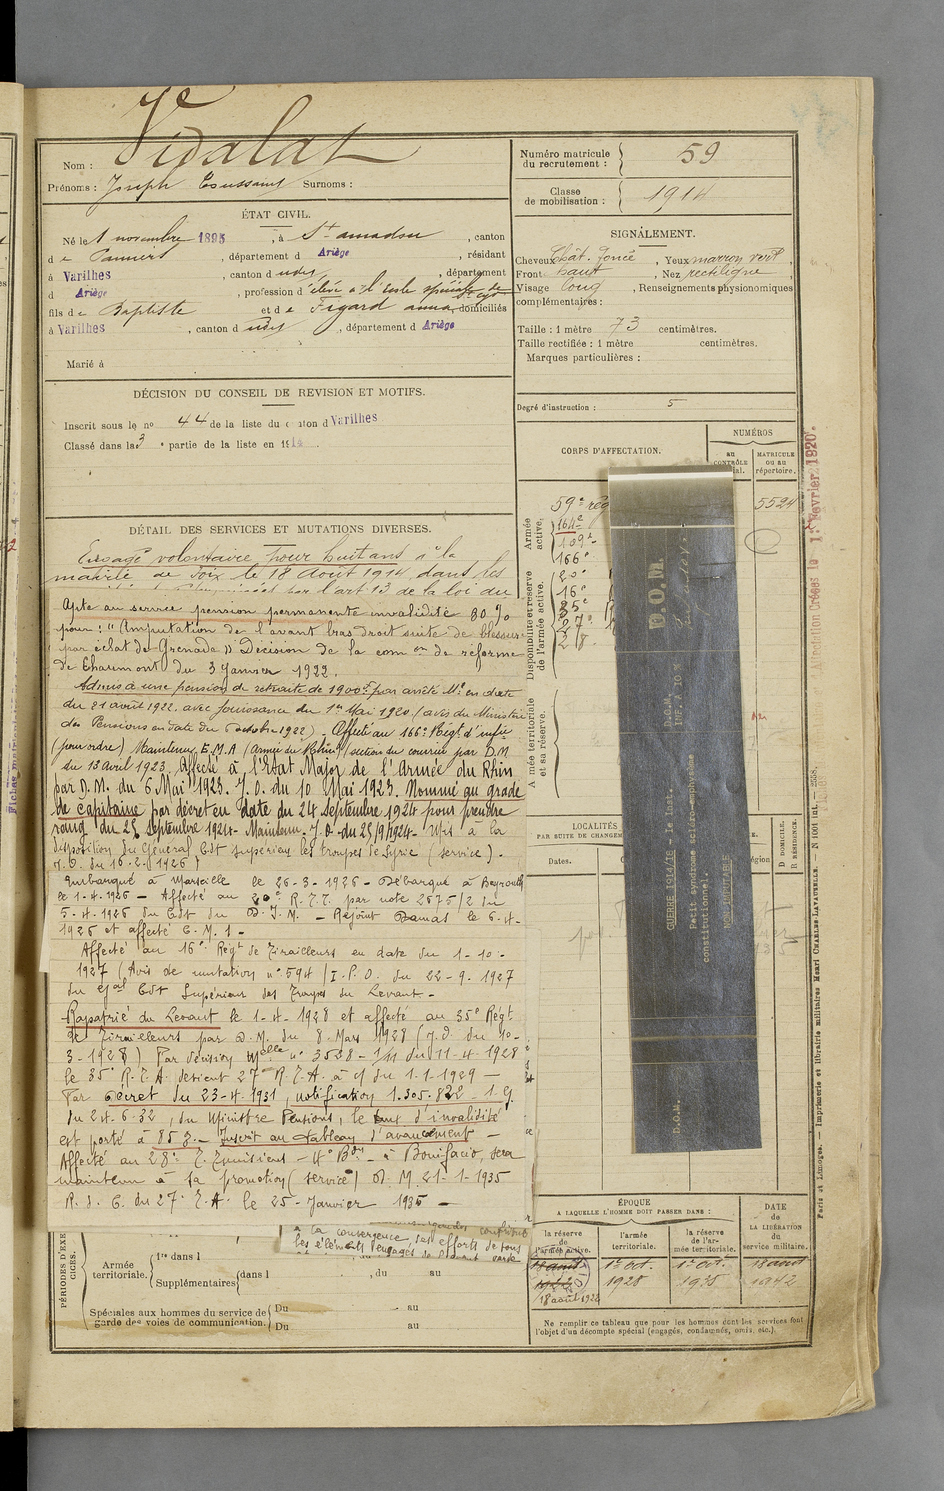 Vidalat
Nom :
Prénoms : Joseph Toussaint Surnoms :
ÉTAT CIVIL.
Né le 1 novembre 1895, à St amadou, canton
de Pamiers, département d Ariège, résidant
à Varilhes, canton d udit, département
d Ariège, profession d'élève à l'Ecole spéciale de St Cyr
fils de Baptiste et de Figard anna, domiciliés
à Varilhes, canton d udit, département d Ariège
Marié à
DÉCISION DU CONSEIL DE REVISION ET MOTIFS.
Inscrit sous le no 44 de la liste du canton d Varilhes
Classé dans la 3e partie de la liste en 1914.
DÉTAIL DES SERVICES ET MUTATIONS DIVERSES.
Engagé volontaire pour huit ans à la
mairie de Foix le 18 Août 1914, dans les
par l'art 13 de la loi du
Apte au service pension permanente invalidité 80 %
pour : "Amputation de l'avant bras droit suite de blessure
par éclat de Grenade" Décision de la com on de réforme
de Chaumont du 3 Janvier 1922.
Admis à une pension de retraite de 1900f par arrêté Mel en date
du 21 août 1922, avec jouissance du 1er Mai 1920 (avis du Ministère
des Pensions en date du octobre 1922) - Affecté au 166e Régt d'infie
(pour ordre) Maintenu E.M.A (Armée du Rhin) (section du courrier par D.M
du 13 Avril 1923. Affecté à l'Etat Major de l'Armée du Rhin
par D.M. du 6 Mai 1923. J.O. du 10 Mai 1923. Nommé au grade
de capitaine par décret en date du 24 septembre 1924 pour prendre
rang du 25 Septembre 1924 - Maintenu. J.O. du 25/9/1924 - Mis à la
disposition du Général Cdt supérieur les troupes de Syrie (service).
J.O. du 16.2.1926)
Embarqué à Marseille le 26-3-1926 - Débarqué à Beyrouth
le 1-4-1926 - Affecté au 20e R.T.T. par note 2675/2 du
5-4-1926 du Cdt du D.I.M. - Rejoint Damas le 6-4-
1926 et affecté C.M.1 -
Affecté au 16e Régt de Tirailleurs en date du 1-10-
1927 (Avis de mutation n° 594 / I.P.O. du 22-9-1927
du Gal Cdt Supérieur des Troupes du Levant -
Rapatrié du Levant le 1-4-1928 et affecté au 35e Régt
de Tirailleurs par D.M. du 8 Mars 1928 (J.O. du 10-
3-1928) Par décision Mielle n° 3538-1/11 du 11-4-1928
le 35e R.T.A. devient 27e R.T.A. à cj du 1-1-1929 -
Par décret du 23-4-1931, notification 1.305.822 - 1.G.
du 24.6.32, du Ministère Pensions, le taux d'invalidité
est porté à 85 %. - Inscrit au tableau d'avancement -
Affecté au 28e T. Tunisiens - 4e Bon - à Bonifacio, sera
maintenu à sa promotion (service) D.M. 21-1-1935
R.d.C. du 27e T.A. le 25-Janvier 1935 -
à la convergence, ses efforts de tous
les éléments engagés
PÉRIODES D'EXERCICES.
Armée territoriale.
1re dans l
Supplémentaires dans l , du au
Spéciales aux hommes du service de garde des voies de communication.
Du au
Du au
Numéro matricule du recrutement : 59
Classe de mobilisation : 1914
SIGNALEMENT.
Cheveux Chât. foncé, Yeux marron vert,
Front haut, Nez rectiligne
Visage long, Renseignements physionomiques
complémentaires :
Taille : 1 mètre 73 centimètres.
Taille rectifiée : 1 mètre centimètres.
Marques particulières :
Degré d'instruction : 5
CORPS D'AFFECTATION.
NUMÉROS
au CONTRÔLE
MATRICULE ou au répertoire.
Armée active.
59e rég 5524
164e
109e
166e
Disponibilité et réserve de l'armée active.
20e
16e
35e
27e
28
Armée territoriale et sa réserve.
D.O.M.
D.O.M.
INF. A 10 %
GUERRE 1914/18 - 1e inst.
Petit syndrome scléro-emphysème
constitutionnel.
NON IMPUTABLE
D.O.M.
LOCALITÉS
PAR SUITE DE CHANGEM
Dates.
région
D DOMICILE.
R RÉSIDENCE.
ÉPOQUE
A LAQUELLE L'HOMME DOIT PASSER DANS :
la réserve de l'armée active.
l'armée territoriale.
la réserve de l'armée territoriale.
DATE de LA LIBÉRATION du service militaire.
18 août 1922
1er oct. 1928
1er oct. 1935
18 août 1942
18 août 1922
Ne remplir ce tableau que pour les hommes dont les services font
l'objet d'un décompte spécial (engagés, condamnés, omis, etc.).
Paris et Limoges. — Imprimerie et librairie militaires Henri CHARLES-LAVAUZELLE. — N° 1001 int. — 2558.
1er Février 1920.